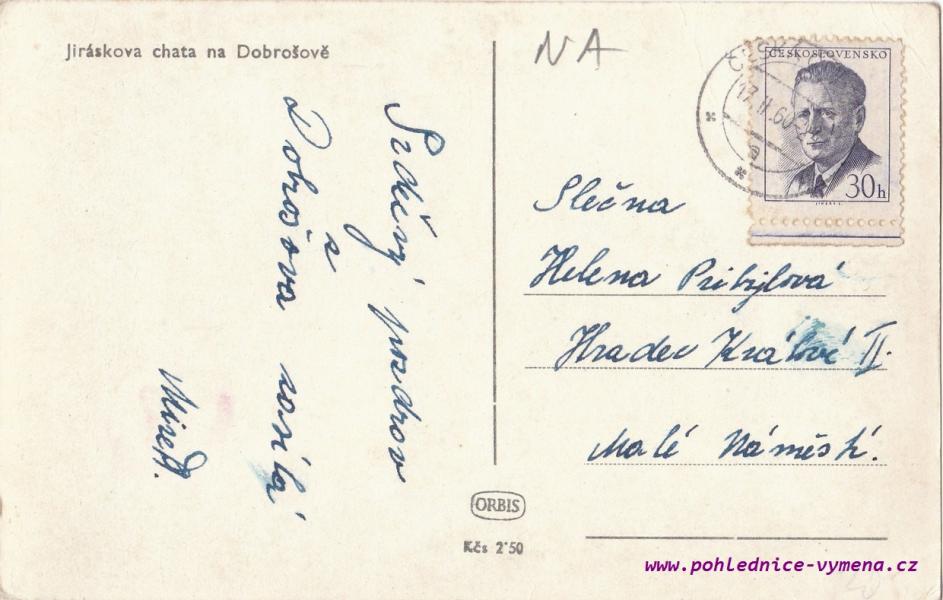 Jiráskova chata na Dobrošově
NA
ČESKOSLOVENSKO
17.II.60
30h
Srdečný pozdrav
z
Dobrošova zasílá
Slečna
Helena Pribylová
Hradec Králové II.
Malé Náměstí.
ORBIS
Kčs 2·50
www.pohlednice-vymena.cz